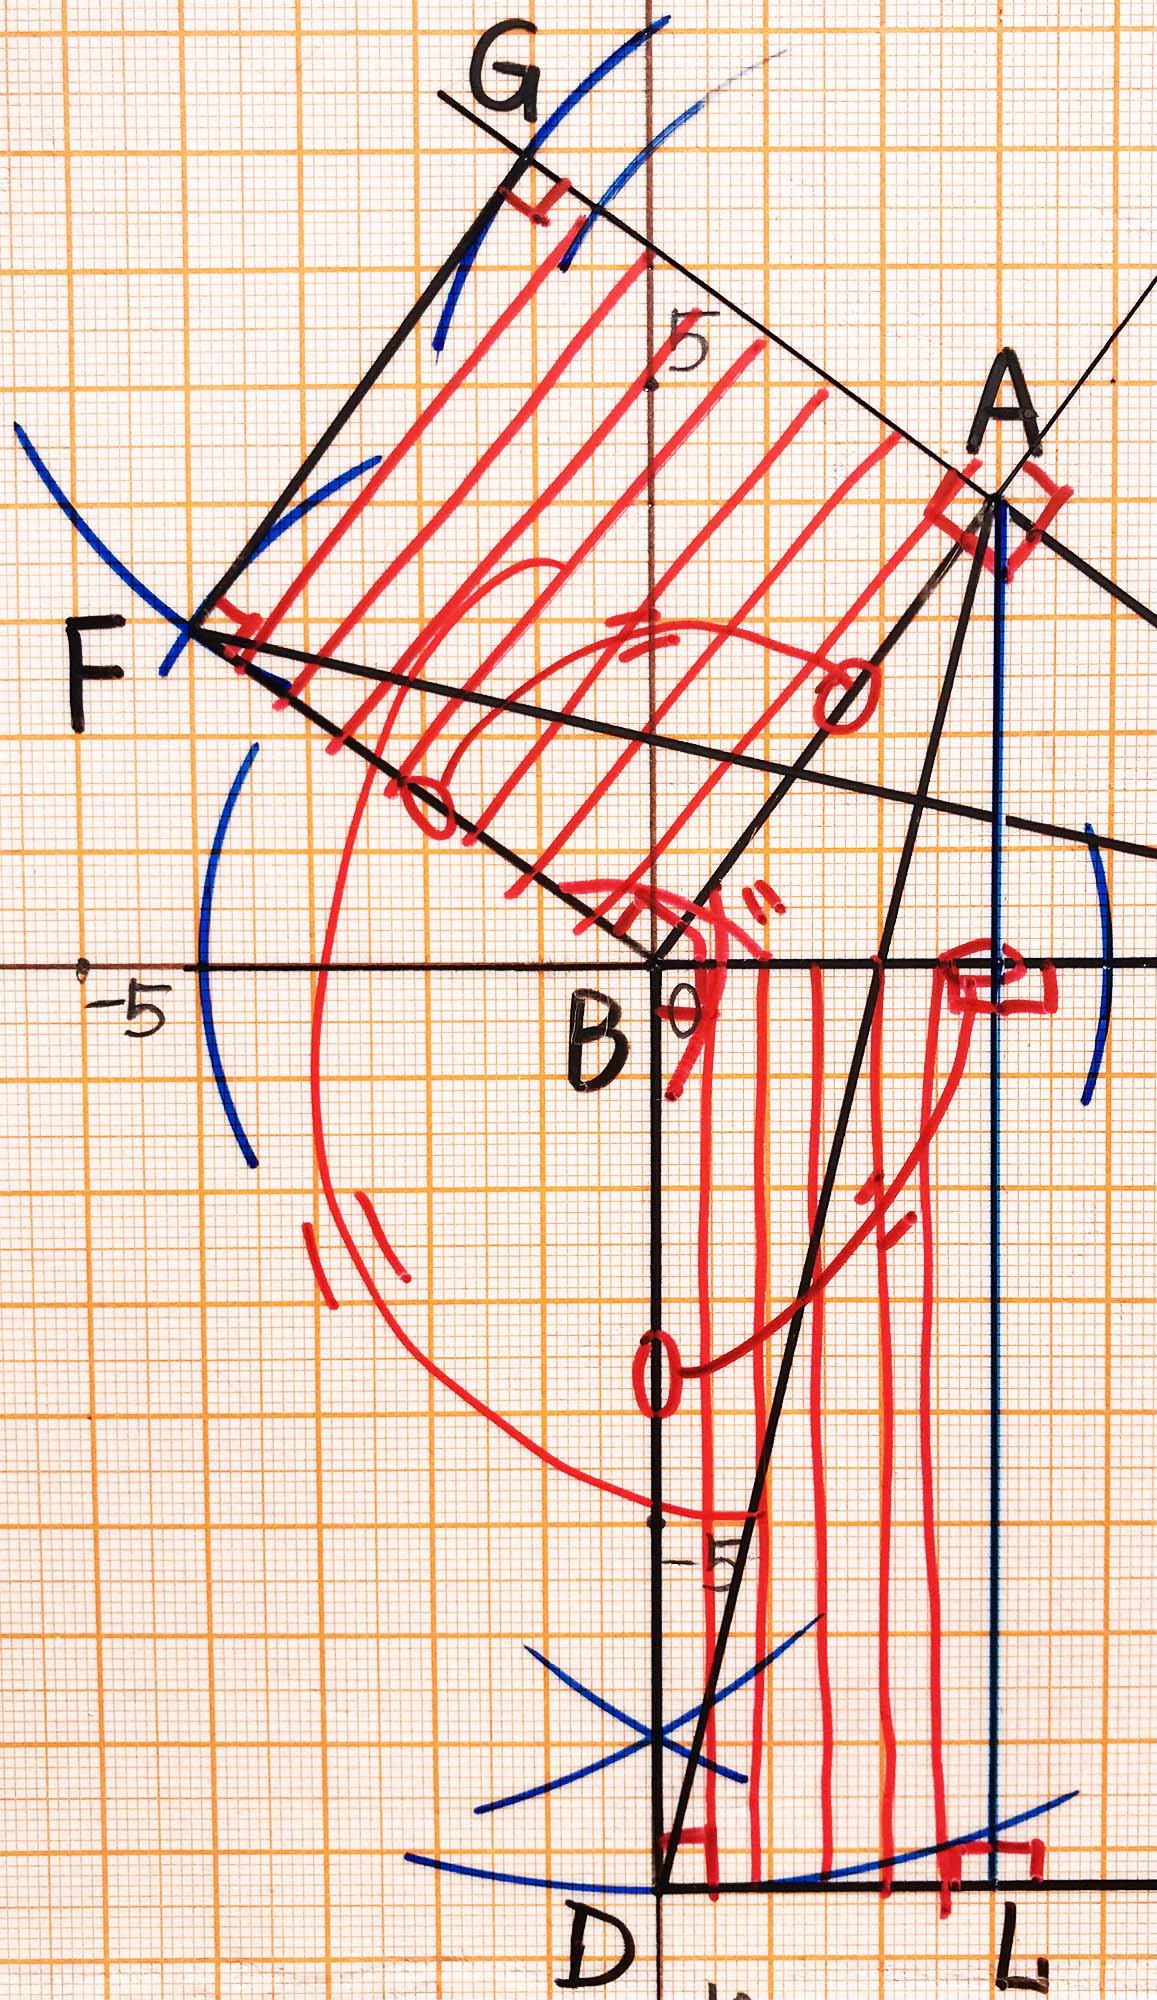 G
5
A
F
-5
B
0
-5
D
L